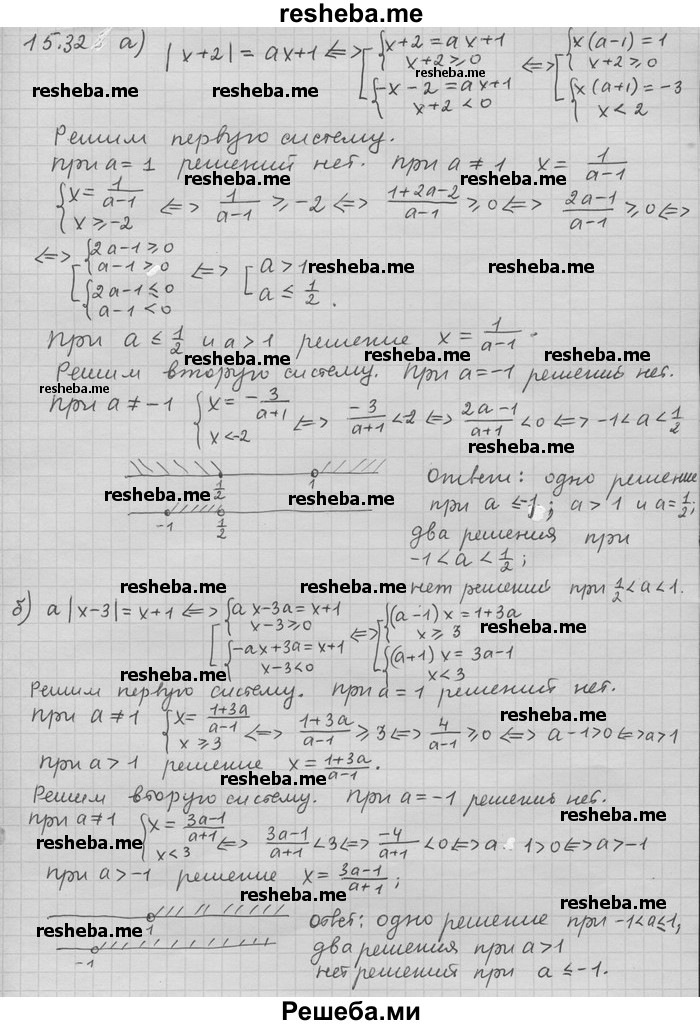 resheba.me
15.32 а) |x+2| = ax+1 <=> [ { x+2 = ax+1 x+2 ⩾ 0 { -x-2 = ax+1 x+2 < 0 <=> [ { x(a-1) = 1 x+2 ⩾ 0 { x(a+1) = -3 x < 2
resheba.me resheba.me resheba.me
Решим первую систему.
При a = 1 решений нет. при a ≠ 1 x = 1/(a-1)
resheba.me resheba.me
{ x = 1/(a-1) x ⩾ -2 <=> 1/(a-1) ⩾ -2 <=> (1+2a-2)/(a-1) ⩾ 0 <=> (2a-1)/(a-1) ⩾ 0 <=>
<=> [ { 2a-1 ⩾ 0 a-1 ⩾ 0 { 2a-1 ⩽ 0 a-1 < 0 <=> [ a > 1 a ⩽ 1/2.
resheba.me resheba.me
При a ⩽ 1/2 и a > 1 решение x = 1/(a-1).
resheba.me resheba.me
Решим вторую систему. При a = -1 решений нет.
resheba.me
При a ≠ -1 { x = -3/(a+1) x < -2 <=> -3/(a+1) < -2 <=> (2a-1)/(a+1) < 0 <=> -1 < a < 1/2
resheba.me
1/2 1
resheba.me resheba.me
-1 1/2
Ответ: одно решение
при a ⩽ -1; a > 1 и a = 1/2;
два решения при
-1 < a < 1/2;
нет решений при 1/2 < a < 1.
resheba.me resheba.me
б) a|x-3| = x+1 <=> [ { ax-3a = x+1 x-3 ⩾ 0 { -ax+3a = x+1 x-3 < 0 <=> [ { (a-1)x = 1+3a x ⩾ 3 { (a+1)x = 3a-1 x < 3
resheba.me
resheba.me
Решим первую систему. При a = 1 решений нет.
при a ≠ 1 { x = (1+3a)/(a-1) x ⩾ 3 <=> (1+3a)/(a-1) ⩾ 3 <=> 4/(a-1) ⩾ 0 <=> a-1 > 0 <=> a > 1
resheba.me resheba.me
При a > 1 решение x = (1+3a)/(a-1).
resheba.me
Решим вторую систему. При a = -1 решений нет.
при a ≠ 1 { x = (3a-1)/(a+1) x < 3 <=> (3a-1)/(a+1) < 3 <=> -4/(a+1) < 0 <=> a 1 > 0 <=> a > -1
resheba.me resheba.me
при a > -1 решение x = (3a-1)/(a+1);
resheba.me resheba.me
1
-1
resheba.me resheba.me
Ответ: одно решение при -1 < a ⩽ 1,
два решения при a > 1
нет решений при a ⩽ -1.
Решеба.ми